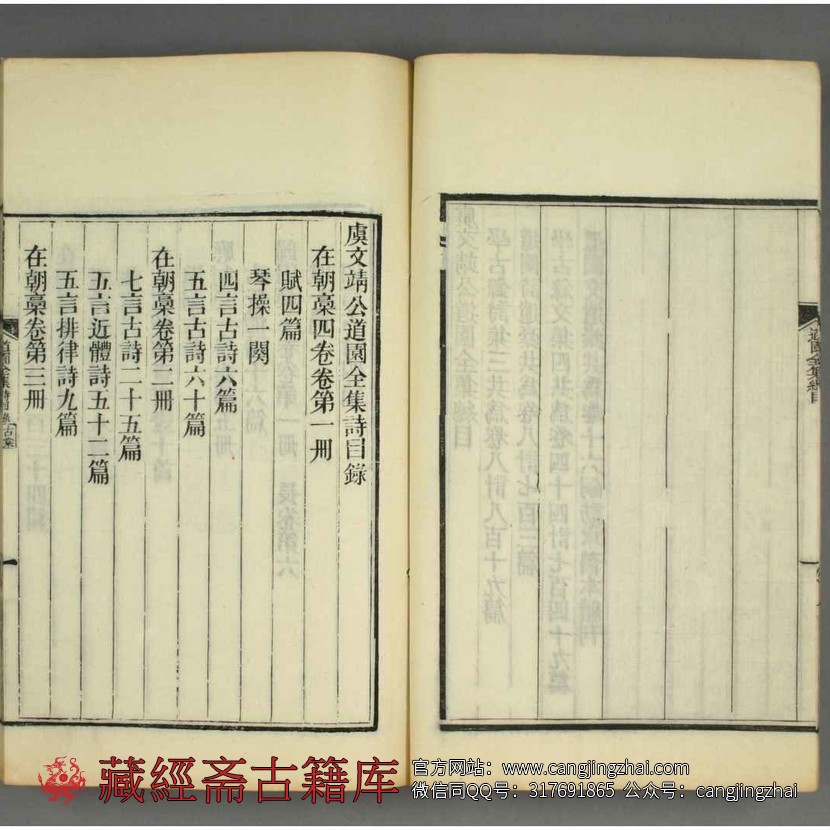 道園全集總目
虞文靖公道園全集詩目錄
在朝藁四卷卷第一冊
賦四篇
琴操一闋
四言古詩六篇
五言古詩六十篇
在朝藁卷第二冊
七言古詩二十五篇
五言近體詩五十二篇
五言排律詩九篇
在朝藁卷第三冊
道園全集詩目錄
一
藏經斋古籍库
官方网站：www.cangjingzhai.com
微信同QQ号：317691865 公众号：cangjingzhai